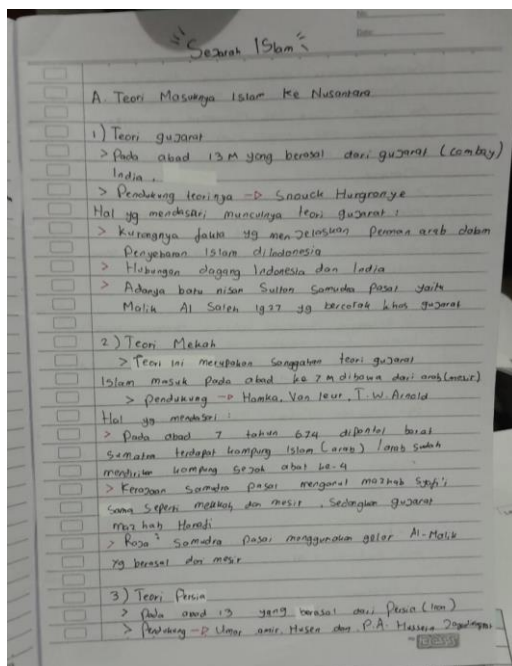 No:
Date:
Sejarah Islam
A. Teori Masuknya Islam Ke Nusantara
1) Teori gujarat
> Pada abad 13 M yang berasal dari gujarat (cambay)
India.
> Pendukung teorinya → Snouck Hurgronye
Hal yg mendasari munculnya teori gujarat :
> Kurangnya fakta yg menjelaskan Peranan arab dalam
Penyebaran Islam diIndonesia
> Hubungan dagang Indonesia dan India
> Adanya batu nisan Sultan Samudra Pasai yaitu
Malik Al Saleh 1297 yg bercorak khas gujarat
2) Teori Mekah
> Teori ini merupakan sanggahan teori gujarat
Islam masuk Pada abad ke 7 m dibawa dari arab (mesir)
> Pendukung → Hamka, Van leur, T.W. Arnold
Hal yg mendasari :
> Pada abad 7 tahun 674 dipantai barat
Sumatra terdapat kampung Islam (arab) / arab sudah
mendirikan kampung sejak abat ke-4
> Kerajaan Samudra pasai menganut mazhab Syafi'i
sama seperti mekkah dan mesir, Sedangkan gujarat
mazhab Hanafi
> Raja² Samudra pasai menggunakan gelar Al-Malik
yg berasal dari mesir
3) Teori Persia
> Pada abad 13 yang berasal dari Persia (Iran)
> Pendukung → Umar amir Husen dan P.A. Hussein